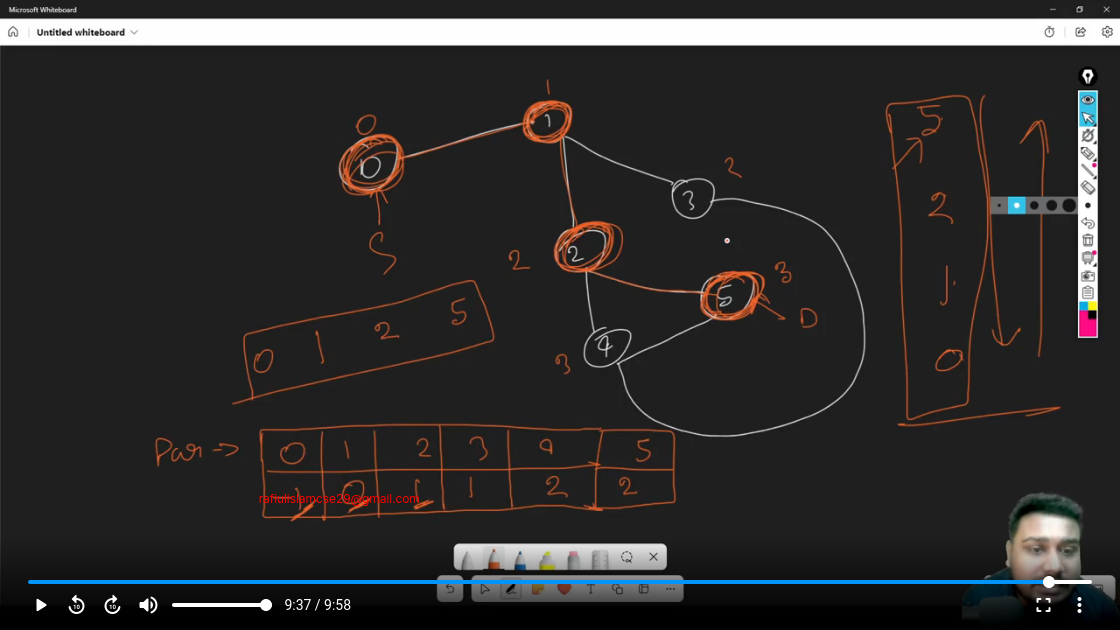 Microsoft Whiteboard
Untitled whiteboard
0
1
2
2
3
3
0
1
2
3
4
5
S
D
0 1 2 5
5
2
1
0
Par -> 0 1 2 3 4 5
-1 0 1 1 2 2
rafiulislamcse29@gmail.com
10 10 9:37 / 9:58